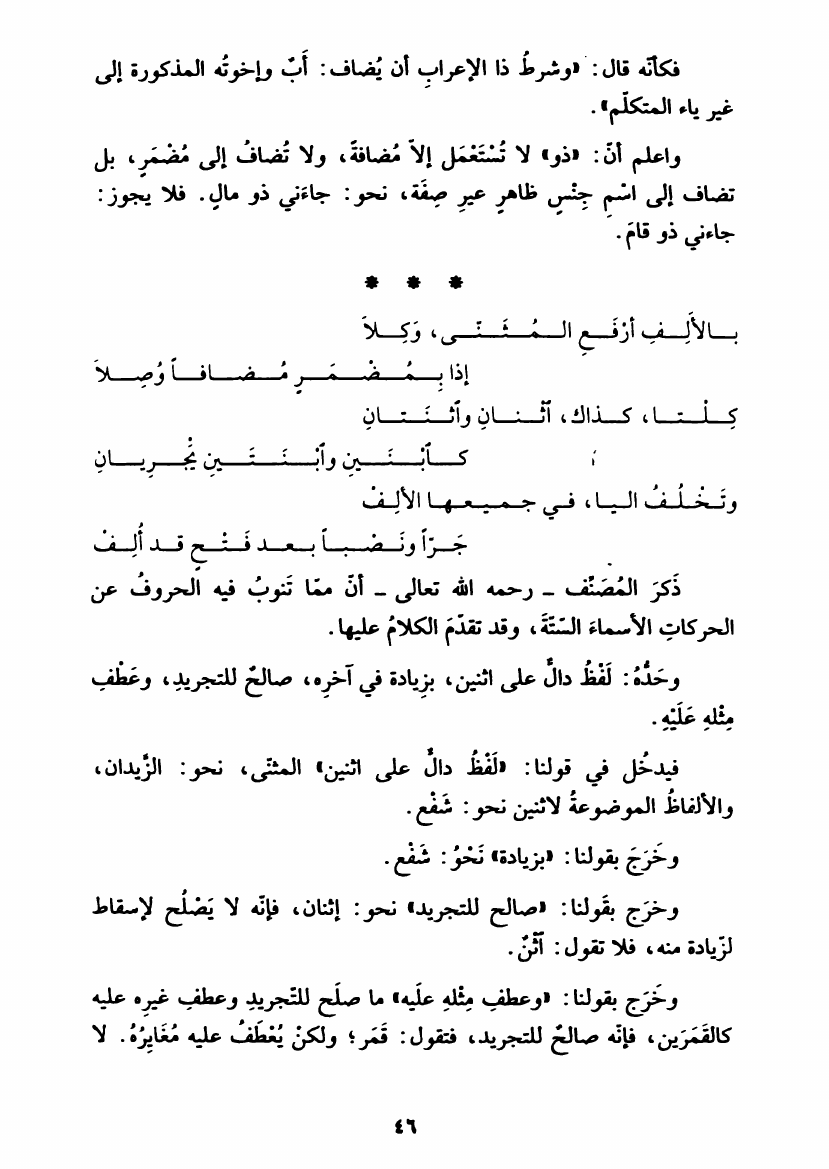 فكأنّه قال: «وشرطُ ذا الإعرابِ أن يُضاف: أَبٌ وإخوتُه المذكورة إلى
غير ياء المتكلّم».
واعلم أنّ: «ذو» لا تُسْتَعْمَل إلاّ مُضافةً، ولا تُضافُ إلى مُضْمَرٍ، بل
تضاف إلى اسْمِ جِنْسٍ ظاهرٍ غيرِ صِفَة، نحو: جاءَني ذو مالٍ. فلا يجوز:
جاءني ذو قامَ.
* * *
بالأَلِفِ أرْفَعِ المُثَنّى، وَكِلاَ
إذا بِمُضْمَرٍ مُضافاً وُصِلاَ
كِلْتا، كذاك، ٱثْنانِ وٱثْنَتانِ
كٱبْنَيْنِ وٱبْنَتَينِ يَجْرِيانِ
وتَخْلُفُ اليا، في جميعها الألِفْ
جَرّاً ونَصْباً بعد فَتْحٍ قد أُلِفْ
ذَكرَ المُصَنّف - رحمه الله تعالى - أنّ ممّا تَنوبُ فيه الحروفُ عن
الحركاتِ الأسماءَ السّتّةَ، وقد تقدّمَ الكلامُ عليها.
وحَدُّهُ: لَفْظُ دالٌّ على اثنين، بزِيادة في آخرِه، صالحٌ للتجريدِ، وعَطْفِ
مِثْلهِ عَلَيْهِ.
فيدخُل في قولنا: «لَفْظُ دالٌّ على اثنين» المثنّى، نحو: الزَّيدان،
والألفاظُ الموضوعةُ لاثنين نحو: شَفْع.
وخَرَجَ بقولنا: «بزيادة» نَحْوُ: شَفْع.
وخرَج بقَولنا: «صالح للتجريد» نحو: إثنان، فإنّه لا يَصْلُح لإسقاط
لزّيادة منه، فلا تقول: ٱثْنٌ.
وخَرَج بقولنا: «وعطفِ مِثْلهِ علَيه» ما صلَح للتّجريدِ وعطفِ غيرِه عليه
كالقَمَرَين، فإنّه صالحٌ للتجريد، فتقول: قَمَر؛ ولكنْ يُعْطَفُ عليه مُغَايِرُهُ. لا
٤٦